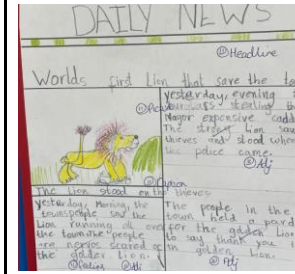 DAILY NEWS
Headline
Worlds first Lion that save the
yesterday, evening
stealing
Mayor expensive
The strong lion saw
thieves and stood when
the police came.
Adj
The Lion stood on the thieves
yesterday, Morning, the
townspeople saw the
Lion running all over
the town the people
are nervs scared of
the golden lion.
Adj
The people in the
town held a
for the golden Lion
to say thank you
golden lion.
Adj